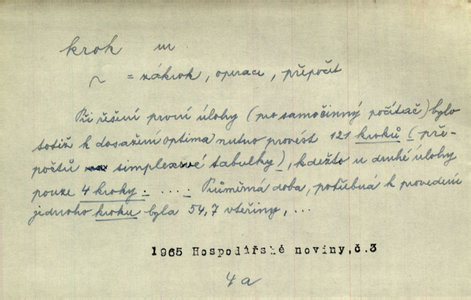 krok m
~ = zákrok, operaci, přepočit
Při řešení první úlohy (pro samočinný počítač) bylo
totiž k dosažení optima nutno provést 121 kroků (pře-
počtů simplexové tabulky), kdežto u druhé úlohy
pouze 4 kroky. .... Průměrná doba, potřebná k provedení
jednoho kroku byla 54,7 vteřiny, ...
1965 Hospodářské noviny,č.3
4a